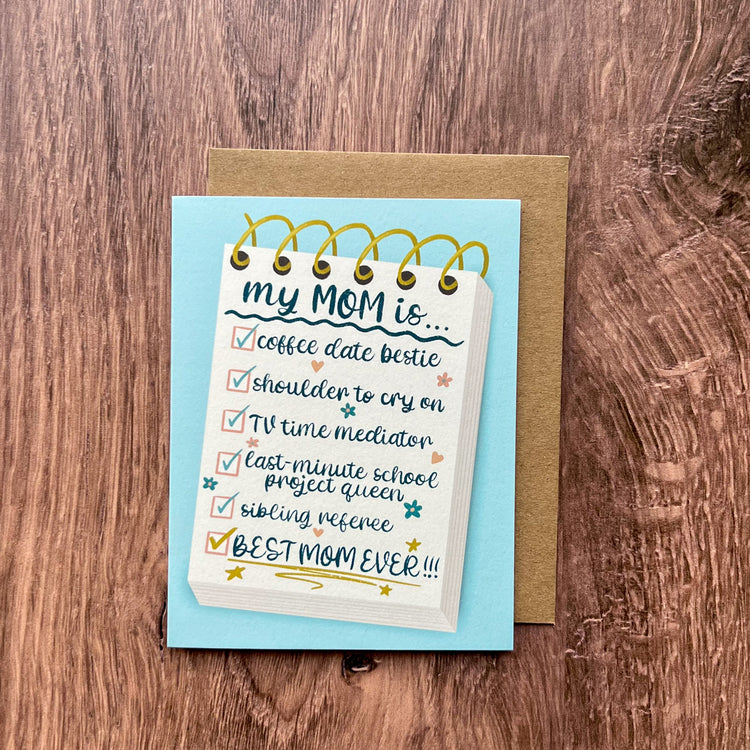 my MOM is...
coffee date bestie
shoulder to cry on
TV time mediator
last-minute school
project queen
sibling referee
BEST MOM EVER!!!